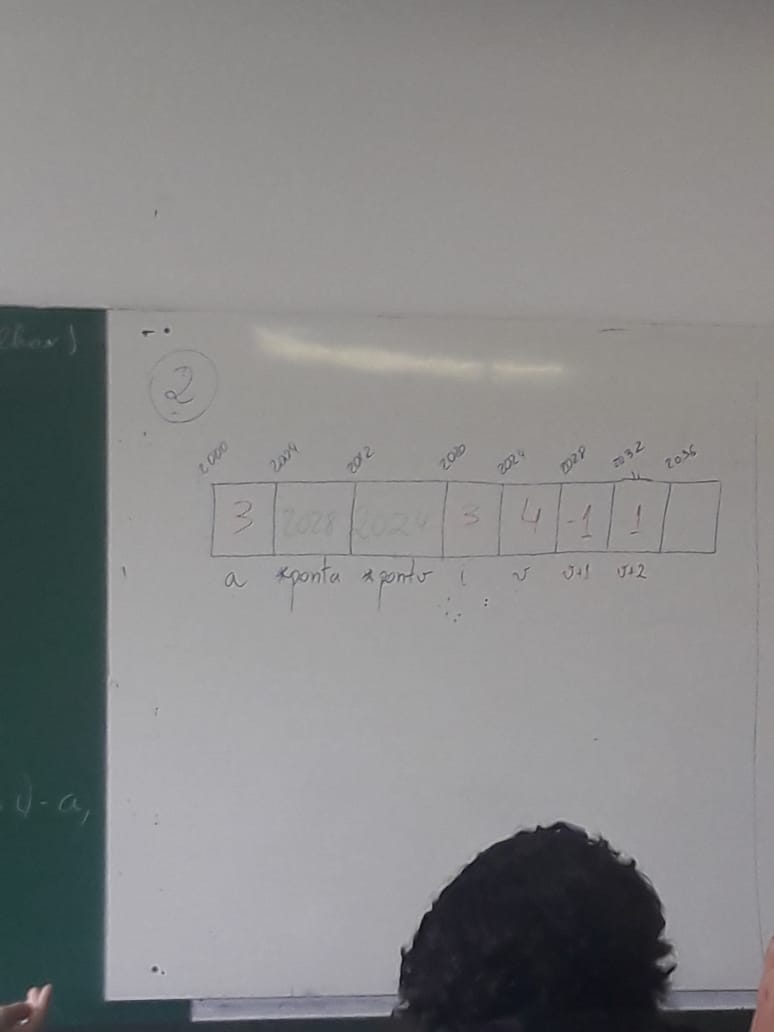 2
2000 2004 2012 2020 2024 2028 2032 2036
3 2028 2024 3 4 -1 1
a *ponta *pontv i v v+1 v+2
)-a,